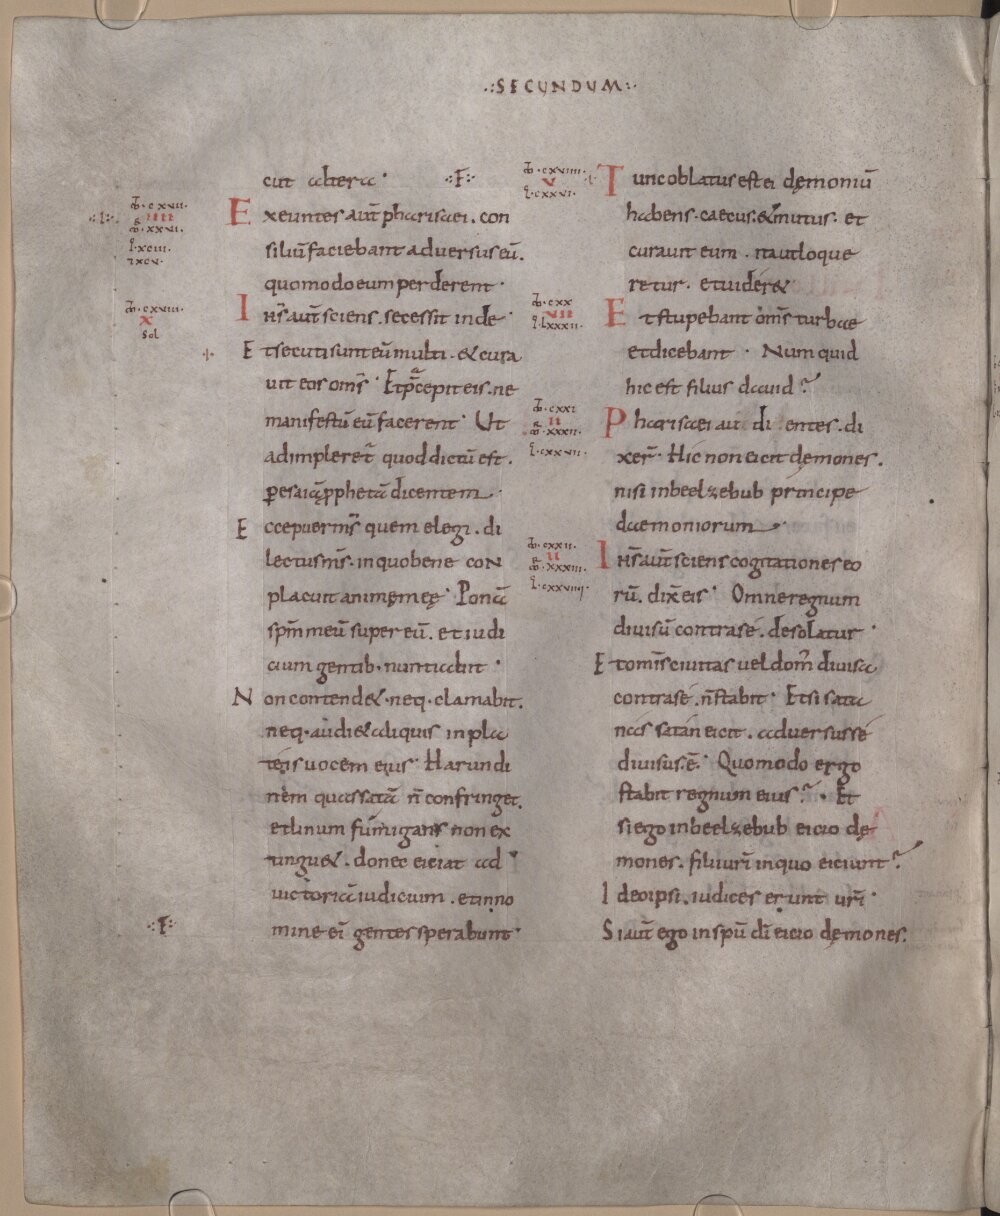 ·:SECUNDUM:·
cut altera · ·:F:·
Exeuntes aut̄ pharisaei. con
siliū faciebant adversus eū.
quomodo eum perderent·
Ihs̄ aut̄ sciens. secessit inde·
Et secuti sunt eū multi. & cura
vit eos oms̄· Et p̄cepit eis. ne
manifestū eū facerent· Ut
adimpleret᷑ quod dictū est.
ꝑ esaiā ꝓphetā dicentem
Ecce puer ms̄ quem elegi. di
lectus ms̄. in quo bene con
placuit animę meę· Ponā
spm̄ meū super eū. et iudi
cium gentib· nuntiabit·
Non contend&. neq· clamabit.
neq· audi& aliquis in pla
teis vocem eius· Harundi
nem quassatā n̄ confringet.
et linum fumigans non ex
tingu&. donec eiciat ad
victoriā iudicium. et in no
mine ei᷒ gentes sperabunt·
·:F:·
·:I:·
ꝳ·cxvii·
IIII
ꝳ·xxvi·
l·xcii·
ꝳ·cxviii·
X
Sol
ꝳ·cxviiii·
V
l·cxxvi·
Tunc oblatus est ei dęmoniū
habens. caecus. & mutus. et
curavit eum. ita ut loque
retur. et vider&
Et stupebant oms̄ turbae
et dicebant· Numquid
hic est filius david?
Pharisaei aut di entes. di
xer̄· Hic non eicit dęmones.
nisi in beelzebub principe
daemoniorum
Ihs̄ aut̄ sciens cogitationes eo
rū. dix̄ eis· Omne regnum
divisū contra se. desolatur·
Et omīs civitas vel dom᷒ divisa
contra se. n̄ stabit· Et si sata
nas satan eicit. adversus se
divisus. ē· Quomodo ergo
stabit regnum eius? · Et
si ego in beelzebub eicio dę
mones. filii vr̄i in quo eiciunt?
Ideo ipsi. iudices erunt vr̄i·
Si aut̄ ego in spū dī eicio dęmones.
ꝳ·cxx
VII
l·lxxxii·
ꝳ·cxxi
II
ꝳ·xxxii·
l·cxxvii·
ꝳ·cxxii·
II
ꝳ·xxxiii·
l·cxxviiii·